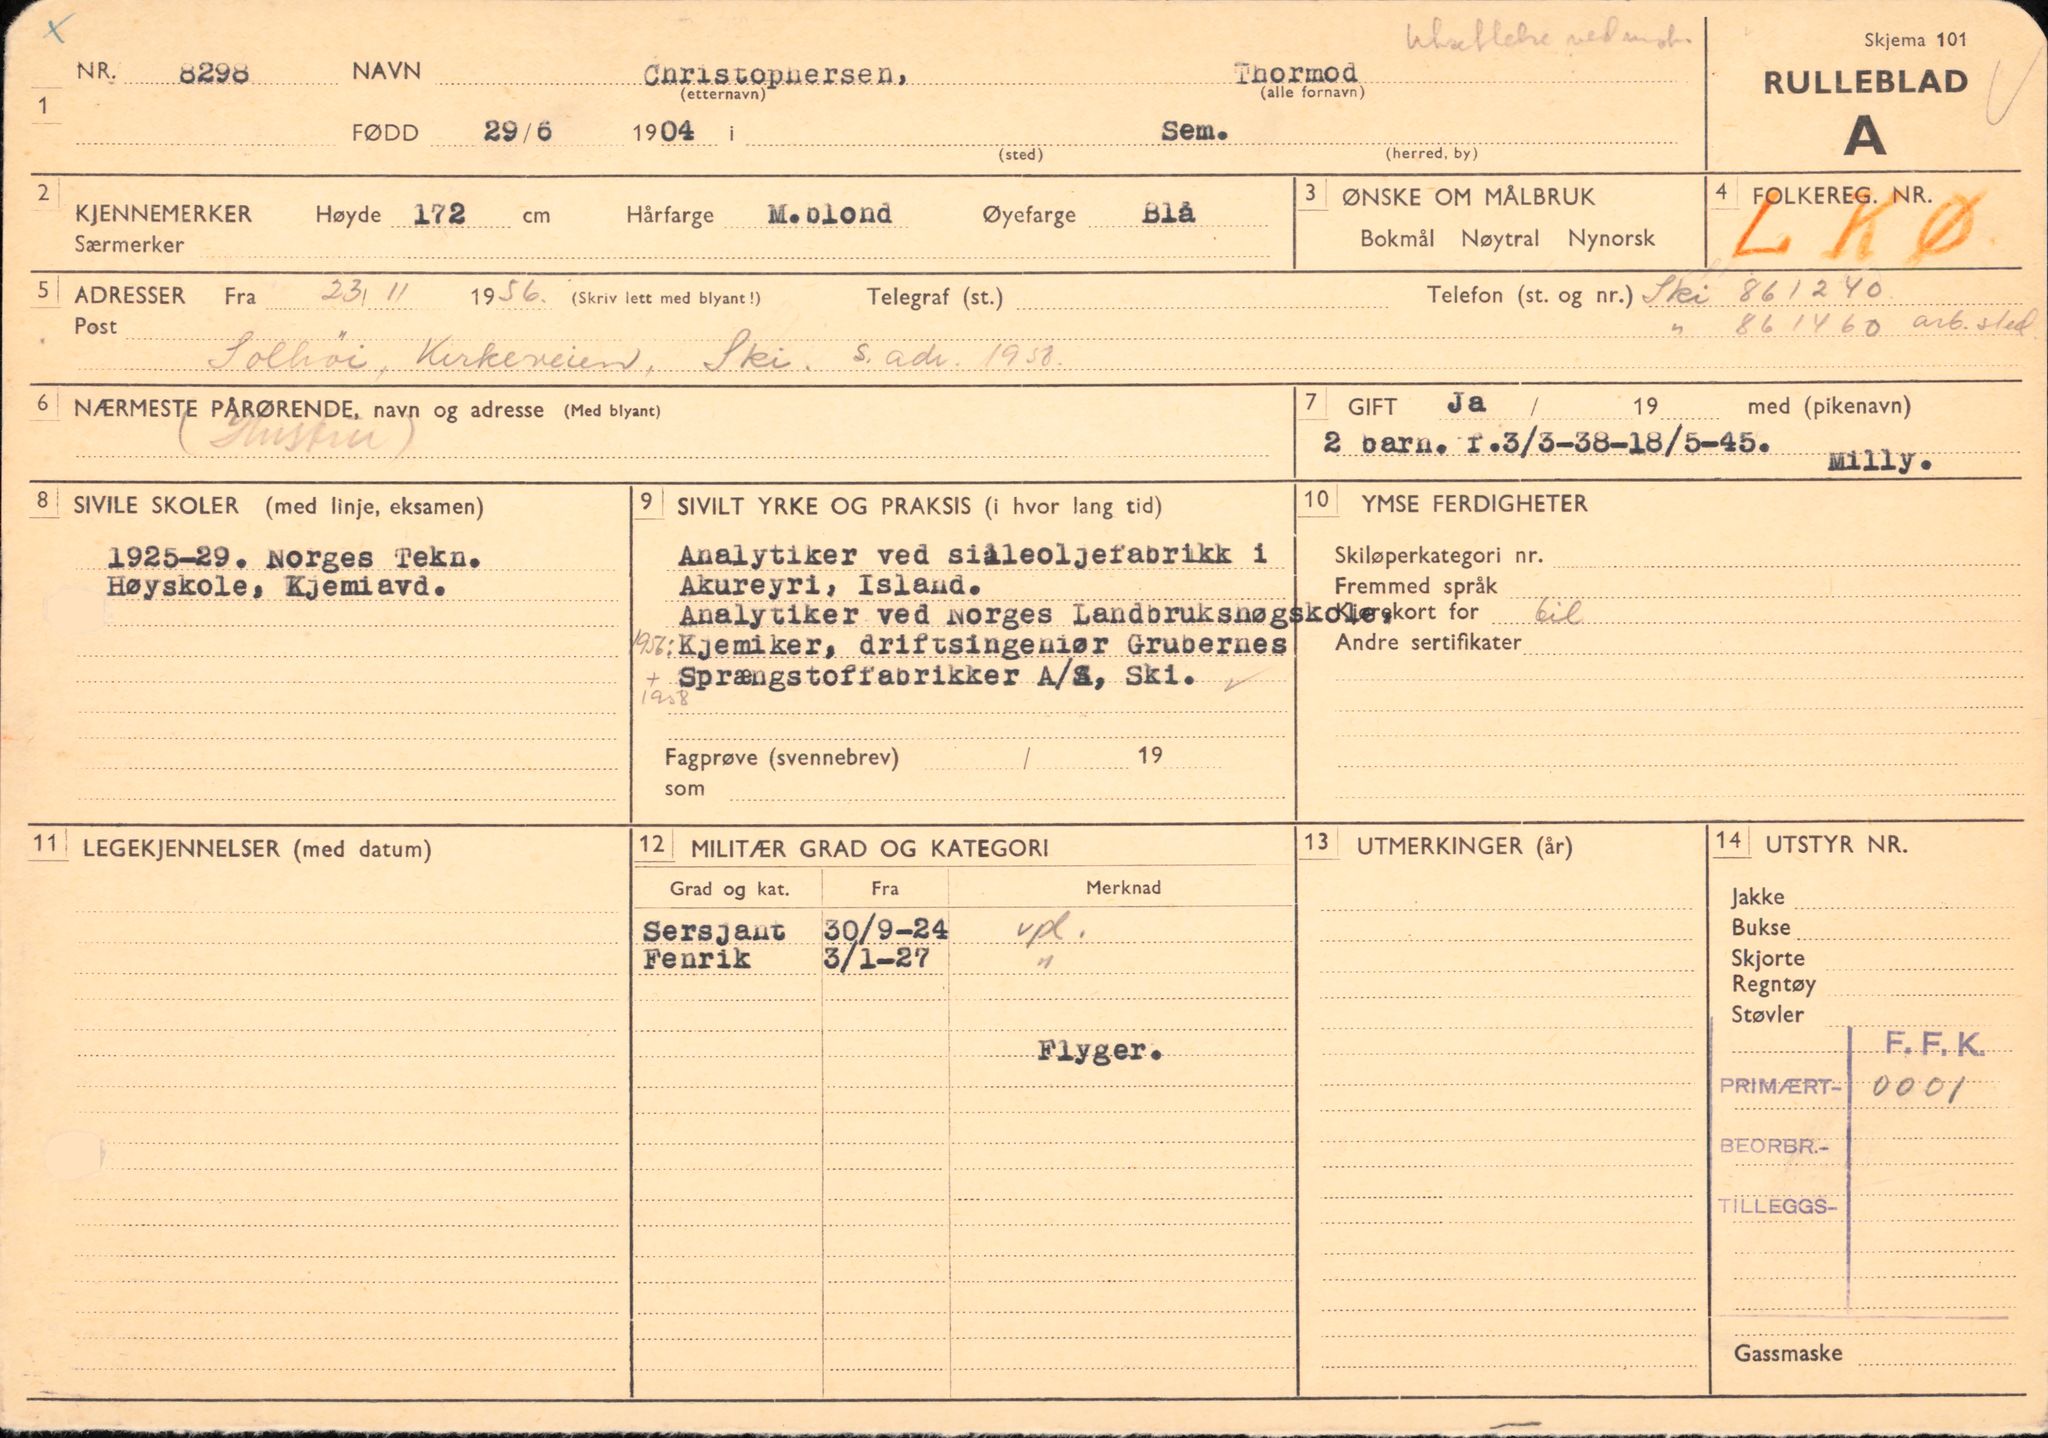 Skjema 101
NR. 8298 NAVN Christophersen, Thormod
(etternavn) (alle fornavn)
RULLEBLAD
A
1
FØDD 29/6 1904 i Sem.
(sted) (herred, by)
2 KJENNEMERKER Høyde 172 cm Hårfarge M.blond Øyefarge Blå
Særmerker
3 ØNSKE OM MÅLBRUK
Bokmål Nøytral Nynorsk
4 FOLKEREG. NR.
L K Ø
5 ADRESSER Fra 23/11 1956. (Skriv lett med blyant!) Telegraf (st.) Telefon (st. og nr.) Ski 861240
Post " 861460 arb.sted
Solhöi, Kirkeveien, Ski. s. adr. 1958.
6 NÆRMESTE PÅRØRENDE, navn og adresse (Med blyant)
(Hustru)
7 GIFT Ja / 19 med (pikenavn)
2 barn. f.3/3-38-18/5-45.
Milly.
8 SIVILE SKOLER (med linje, eksamen)
1925-29. Norges Tekn.
Høyskole, Kjemiavd.
9 SIVILT YRKE OG PRAKSIS (i hvor lang tid)
Analytiker ved silleoljefabrikk i
Akureyri, Island.
Analytiker ved Norges Landbrukshøgskole,
1956: Kjemiker, driftsingeniør Grubernes
+ Sprængstoffabrikker A/S, Ski.
1958
Fagprøve (svennebrev) / 19
som
10 YMSE FERDIGHETER
Skiløperkategori nr.
Fremmed språk
Kjørekort for bil
Andre sertifikater
11 LEGEKJENNELSER (med datum)
12 MILITÆR GRAD OG KATEGORI
Grad og kat. Fra Merknad
Sersjant 30/9-24 vpl.
Fenrik 3/1-27 "
Flyger.
13 UTMERKINGER (år)
14 UTSTYR NR.
Jakke
Bukse
Skjorte
Regntøy
Støvler
F. F. K.
PRIMÆRT- 0001
BEORBR.-
TILLEGGS-
Gassmaske